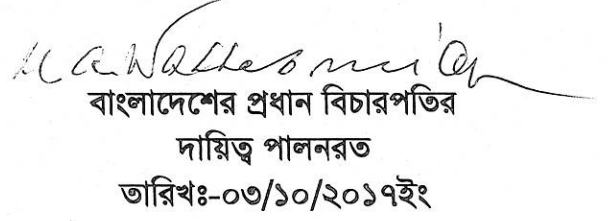 বাংলাদেশের প্রধান বিচারপতির
দায়িত্ব পালনরত
তারিখঃ-০৩/১০/২০১৭ইং